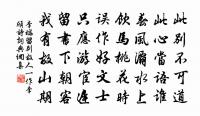 此別不可道
此心當語誰
春風灞水上
飲馬桃花時
誤作好文士
只應遊宦遲
留書下朝客
我有故山期
李端留別故人一作李
頎詩詞典網集